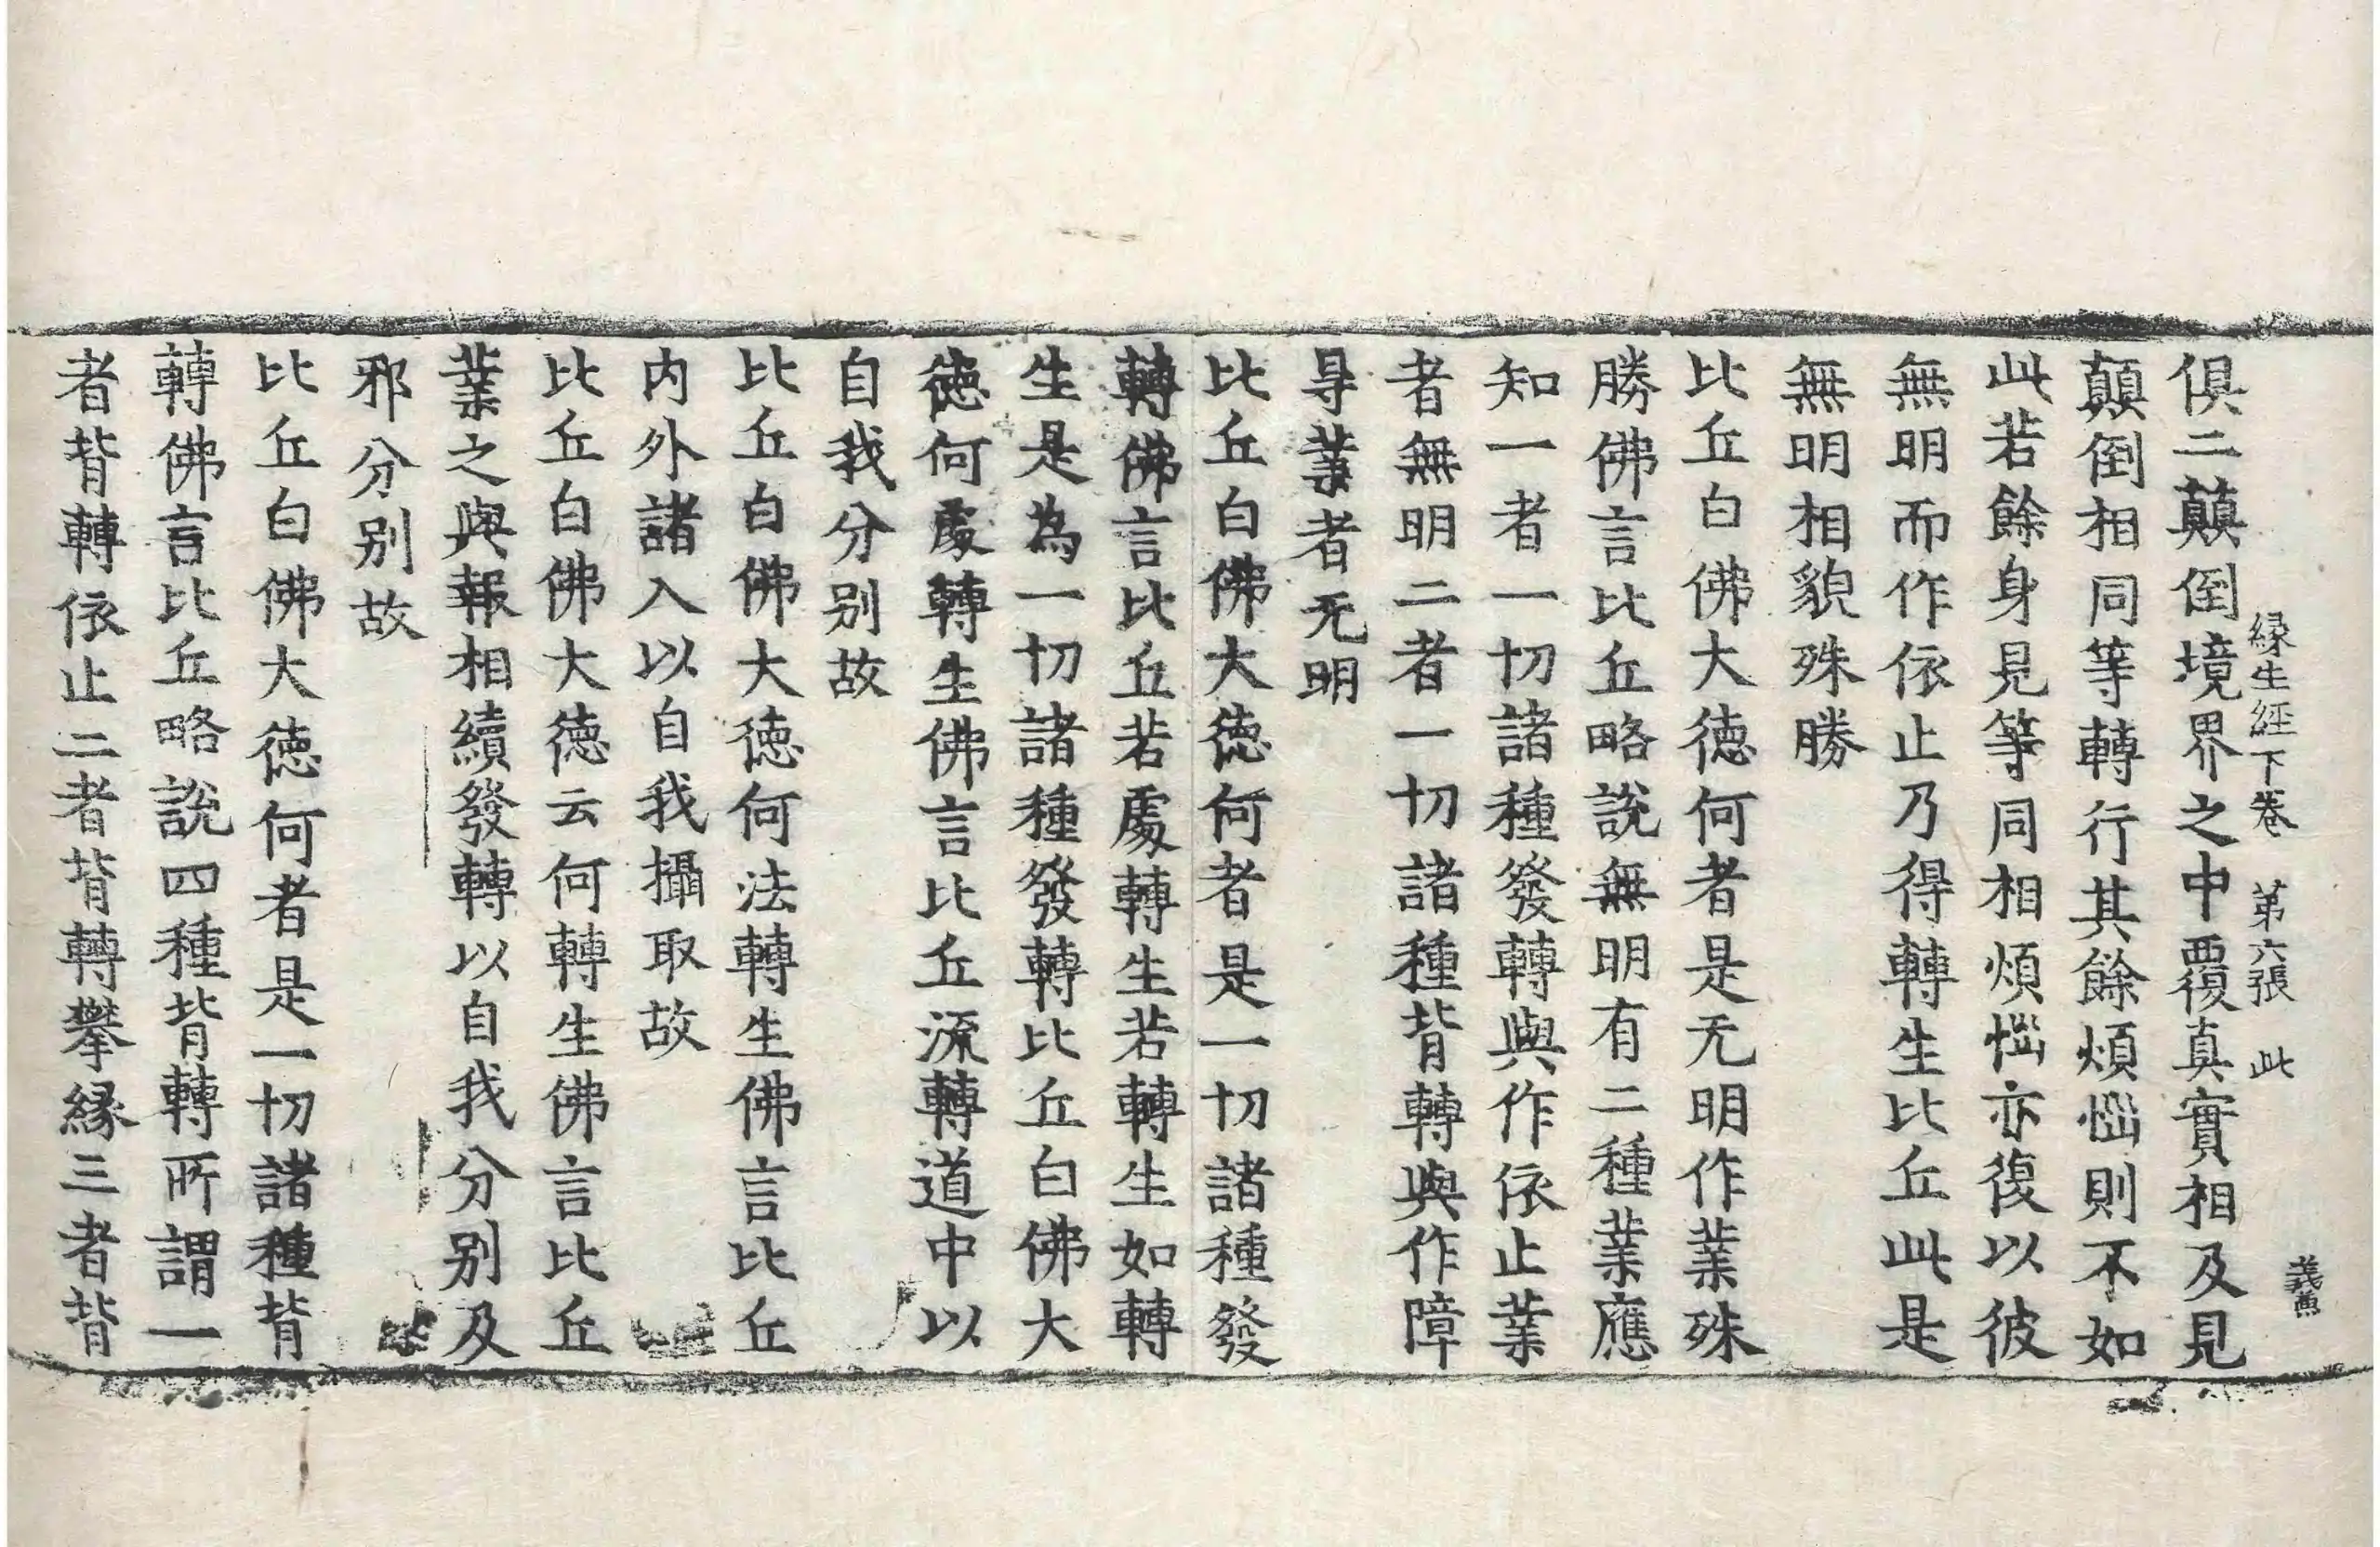 緣生經下卷　第六張　此
俱二顛倒境界之中覆真實相及見
顛倒相同等轉行其餘煩惱則不如
此若餘身見等同相煩惱亦復以彼
無明而作依止乃得轉生比丘此是
無明相貌殊勝
比丘白佛大德何者是无明作業殊
勝佛言比丘略說無明有二種業應
知一者一切諸種發轉與作依止業
者無明二者一切諸種背轉與作障
㝵業者无明
比丘白佛大德何者是一切諸種發
轉佛言比丘若處轉生若轉生如轉
生是為一切諸種發轉比丘白佛大
德何處轉生佛言比丘流轉道中以
自我分别故
比丘白佛大德何法轉生佛言比丘
内外諸入以自我攝取故
比丘白佛大德云何轉生佛言比丘
業之與報相續發轉以自我分别及
邪分别故
比丘白佛大德何者是一切諸種背
轉佛言比丘略說四種背轉所謂一
者背轉依止二者背轉攀緣三者背